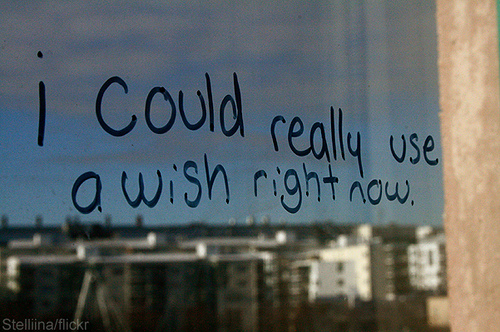 i could really use
a wish right now.
Stelliina/flickr